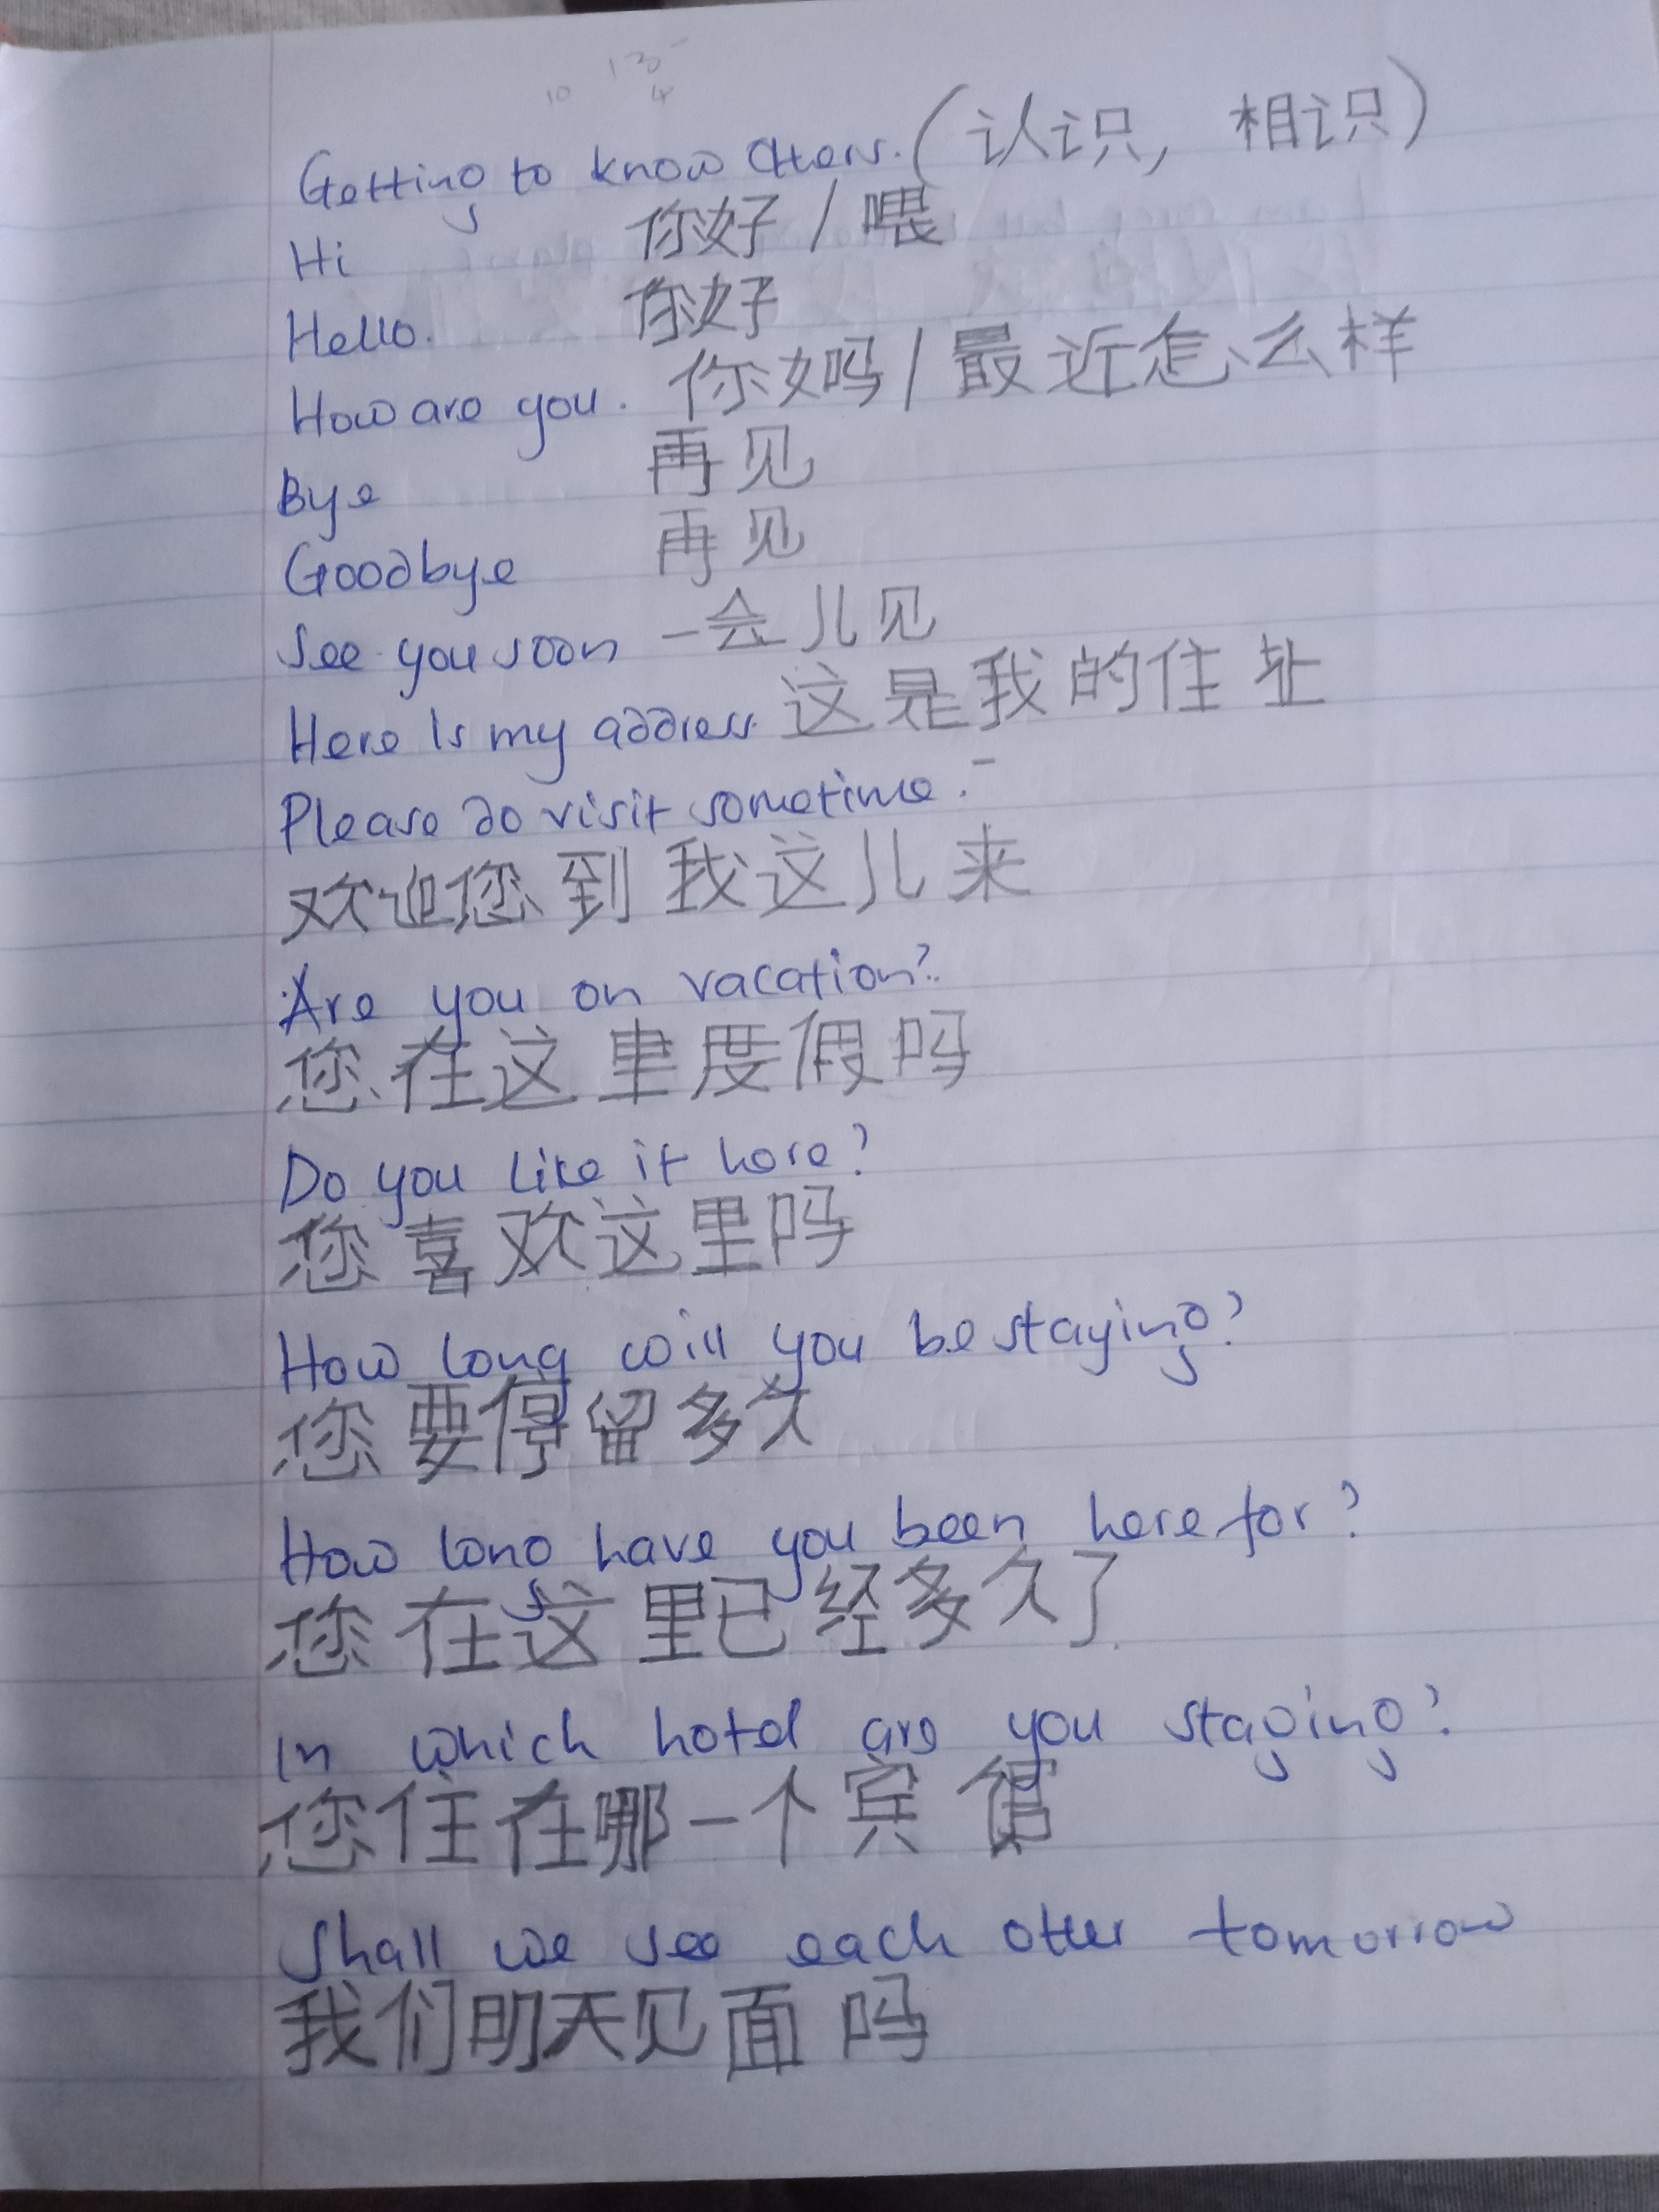 10 13
4
Getting to know others. (认识, 相识)
Hi 你好 / 喂
Hello. 你好
How are you. 你好吗 / 最近怎么样
Bye 再见
Goodbye 再见
See you soon 一会儿见
Here is my address 这是我的住址
Please do visit sometime.
欢迎您到我这儿来
Are you on vacation?
您在这里度假吗
Do you like it here?
您喜欢这里吗
How long will you be staying?
您要停留多久
How long have you been here for?
您在这里已经多久了
In which hotel are you staying?
您住在哪一个宾馆
Shall we see each other tomorrow
我们明天见面吗